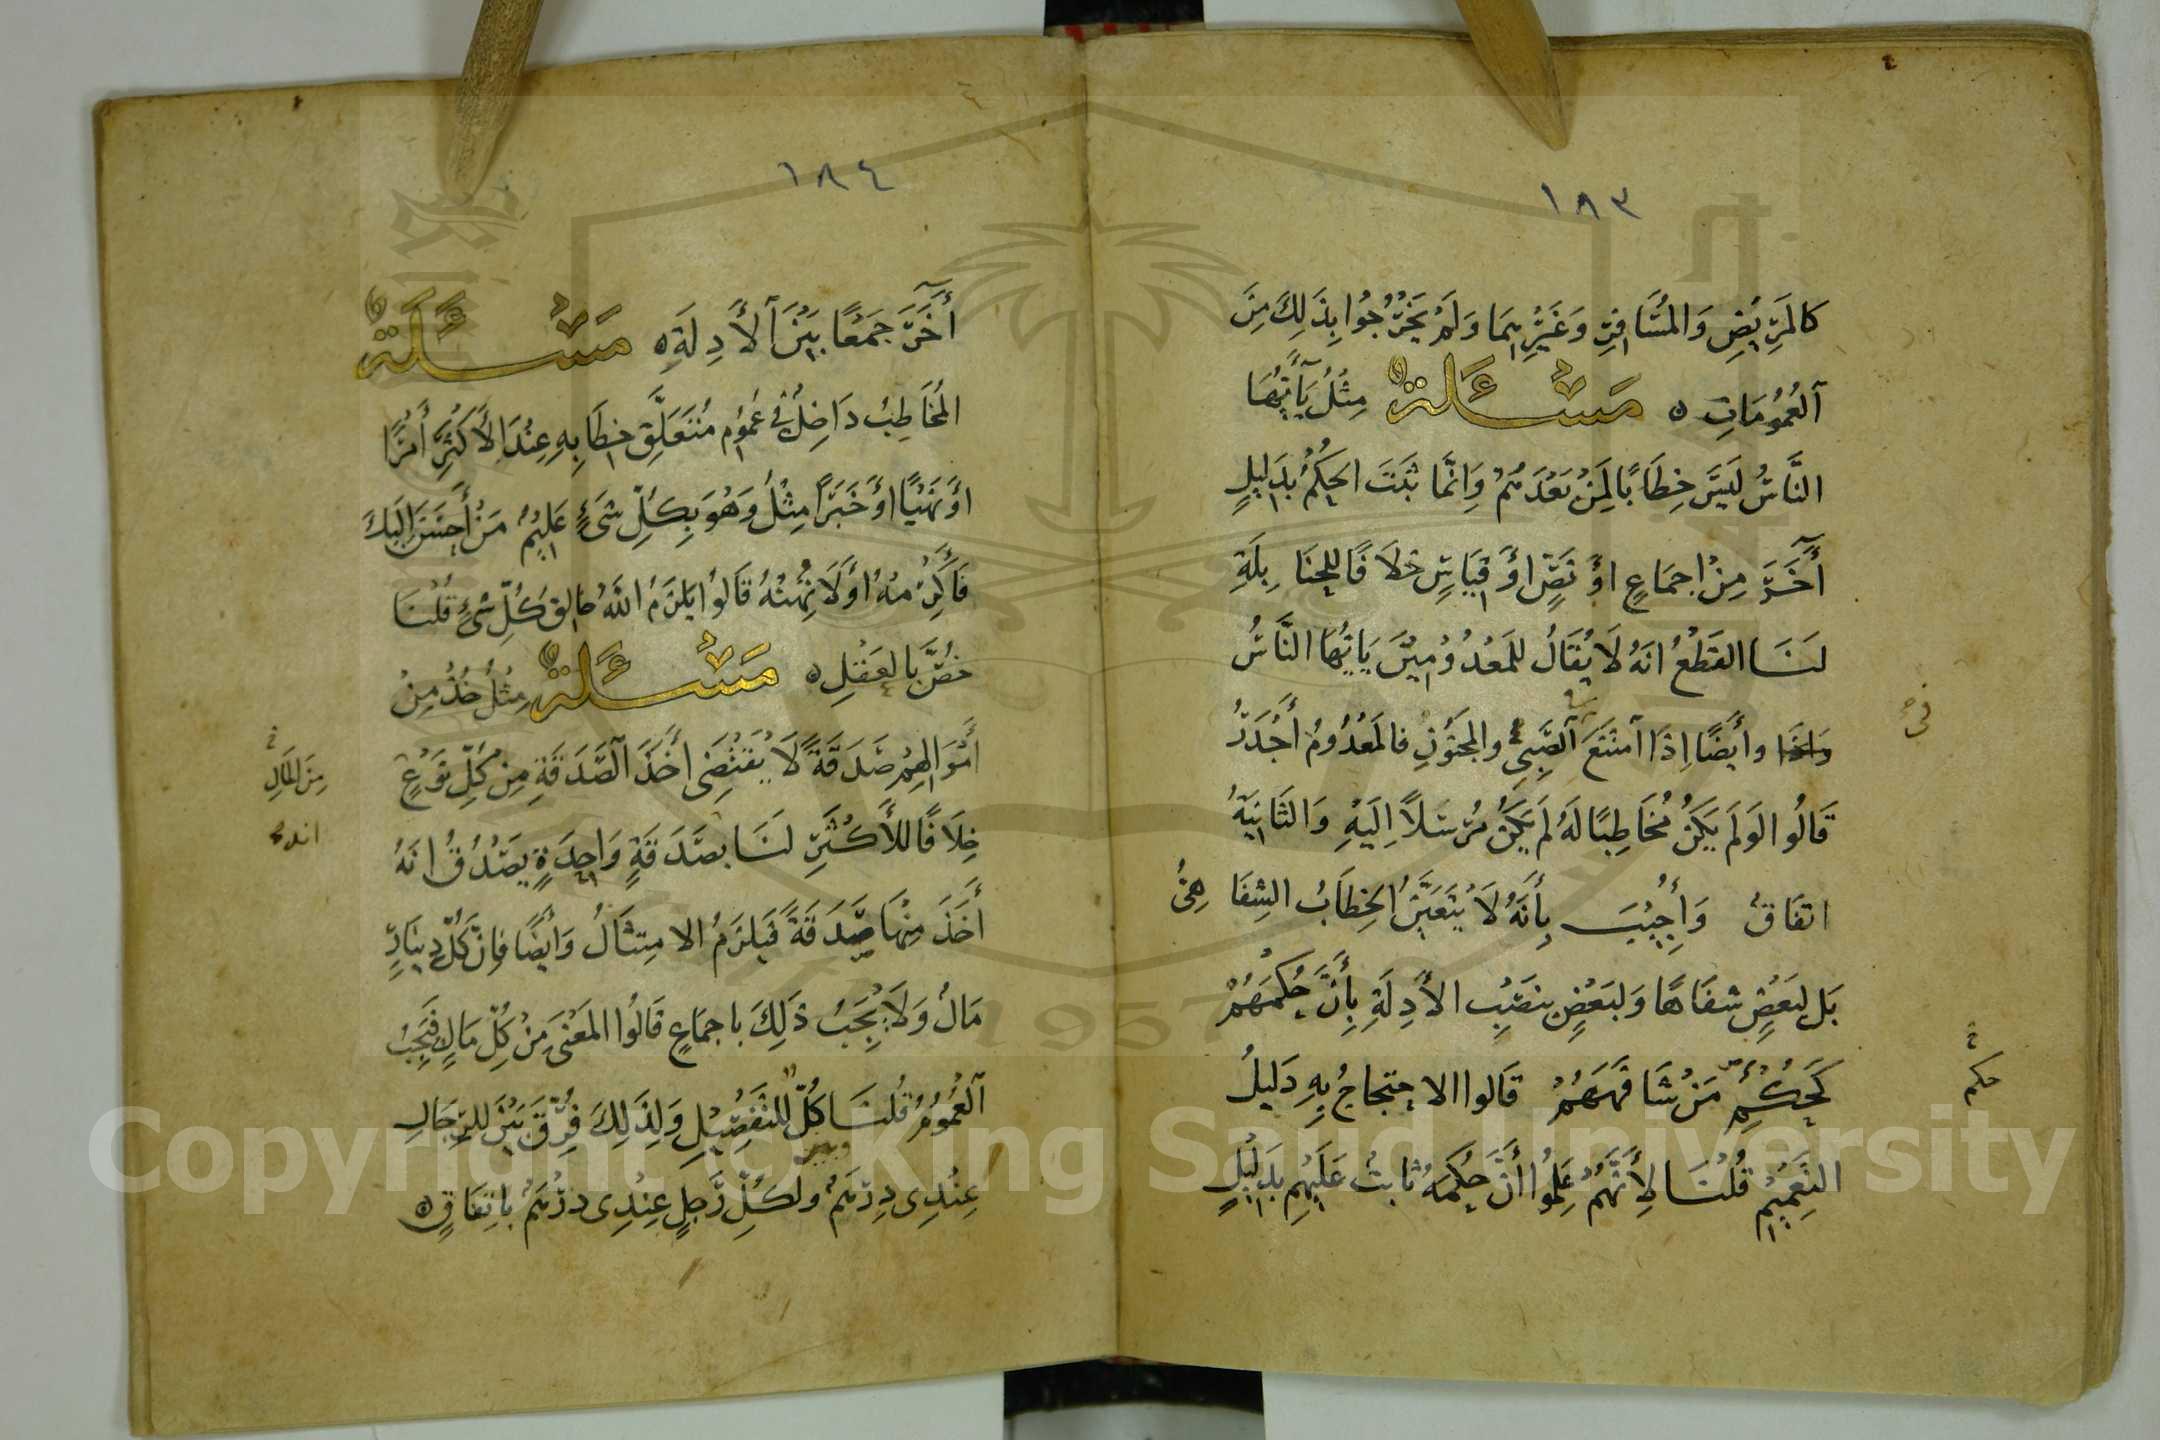 ١٨٣
كالمَرِيضِ وَالمُسَافِرِ وَغَيْرِهِمَا وَلَمْ يَخْرُجُوا بِذَلِكَ مِنَ
آلعُمُومَاتِ ه مَسْـئَلة مِثْلُ يَآأَيُّهَا
النَّاسُ لَيْسَ خِطَابًا لِمَنْ بَعْدَهُمْ وَإنَّمَا ثَبَتَ الحُكْمُ بِدَلِيلٍ
آخَرَ مِنْ إِجمَاعٍ اوْ نَصٍّ اوْ قِيَاسٍ خلَافًا للحنَابِلَةِ
لَنَا القَطْعُ انَهُ لَا يُقَالُ للمَعْدُومِيْنَ يَايُّهَا النَّاسُ
وَاخَا وأيْضًا إذَا آمتَنَعَ آلصَّبِيِّ والمجنُونِ فالمَعْدُومُ أَجْدَرُ
في
قَالُوا لَوَ لَم يَكُنْ مُخَاطِبًا لَهُ لَم يَكُنْ مُرْسَلاً إِلَيْهِ وَالثَانِيَةُ
اتفَاق وَأُجِيْبَ بِأَنَهُ لَا يَتَعَيَّنُ الخِطَابُ الشِفَاهِيُّ
بَل لبَعْضٍ شفَاهًا وَلبَعْضٍ بنَصْبِ الأَدِلَةِ بِأَنَّ حُكْمَهُمْ
كَحُكْمِ مَنْ شَافَهَهُمْ قَالوا الاحتجاجُ بِهِ دَلِيلُ
حكم
التَعْمِيْمِ قُلْنَا لِأَنَّهُمْ عَلِمُوا أَنَّ حُكْمَهُ ثَابتٌ عَلَيْهِم بدَلِيْلٍ
١٨٤
آخَرَ جَمْعًا بَيْنَ آلأَدِلَةِ ه مَسْـئَلَة
المُخَاطِبُ دَاخِلٌ في عُمُومِ مُتَعَلَّقِ خِطَابِهِ عِنْدَ الأَكْثَرِ أَمْرًا
اوْ نَهْيًا اوْ خَبَرًا مِثْلُ وَهُوَ بِكُلِّ شَيْءٍ عَلِيْمٌ مَنْ أَحسَنَ إِلَيكَ
فَأَكْرِمْهُ أَوْ لَا تُهِنْهُ قَالوُا يَلزَمُ اللهُ خَالِق كُلِّ شَيْءٍ قُلْنَا
خُصَّ بالعَقْلِ ه مَسْـئَلَة مِثْلُ خُذْ مِنْ
أَمْوَالِهِمْ صَدَقَةً لَا يَقْتَضِى أَخْذَ آلصَّدَقَةِ مِنْ كُلِّ نَوْعٍ
مِنَ المَالِ
خِلَافًا للأَكْثَرِ لَنَا بصَدَقَةٍ وَاحِدَةٍ يَصْدُقُ انَهُ
أَخَذَ مِنْهَا صَدَقَةً فَيلزَمُ الامِتثَالُ وَأَيْضًا فإنَّ كُلَّ دِينَارٍ
مَالٌ وَلَا يَجِبُ ذَلِكَ باجمَاعٍ قَالُوا المَعْنَى مِنْ كُلِّ مَالٍ فَيَجِبُ
آلعُمُومُ قُلْنَا كُلّ للتَفْصِيْلِ وَلِذَلِكَ فُرِّقَ بَيْنَ للرِجَالِ
وبين
عِنْدِى دِرْهَمٌ ولكُلِّ رَجلٍ عِنْدِى دِرْهَمٌ باتِفَاقٍ ه
Copyright © King Saud University
1957